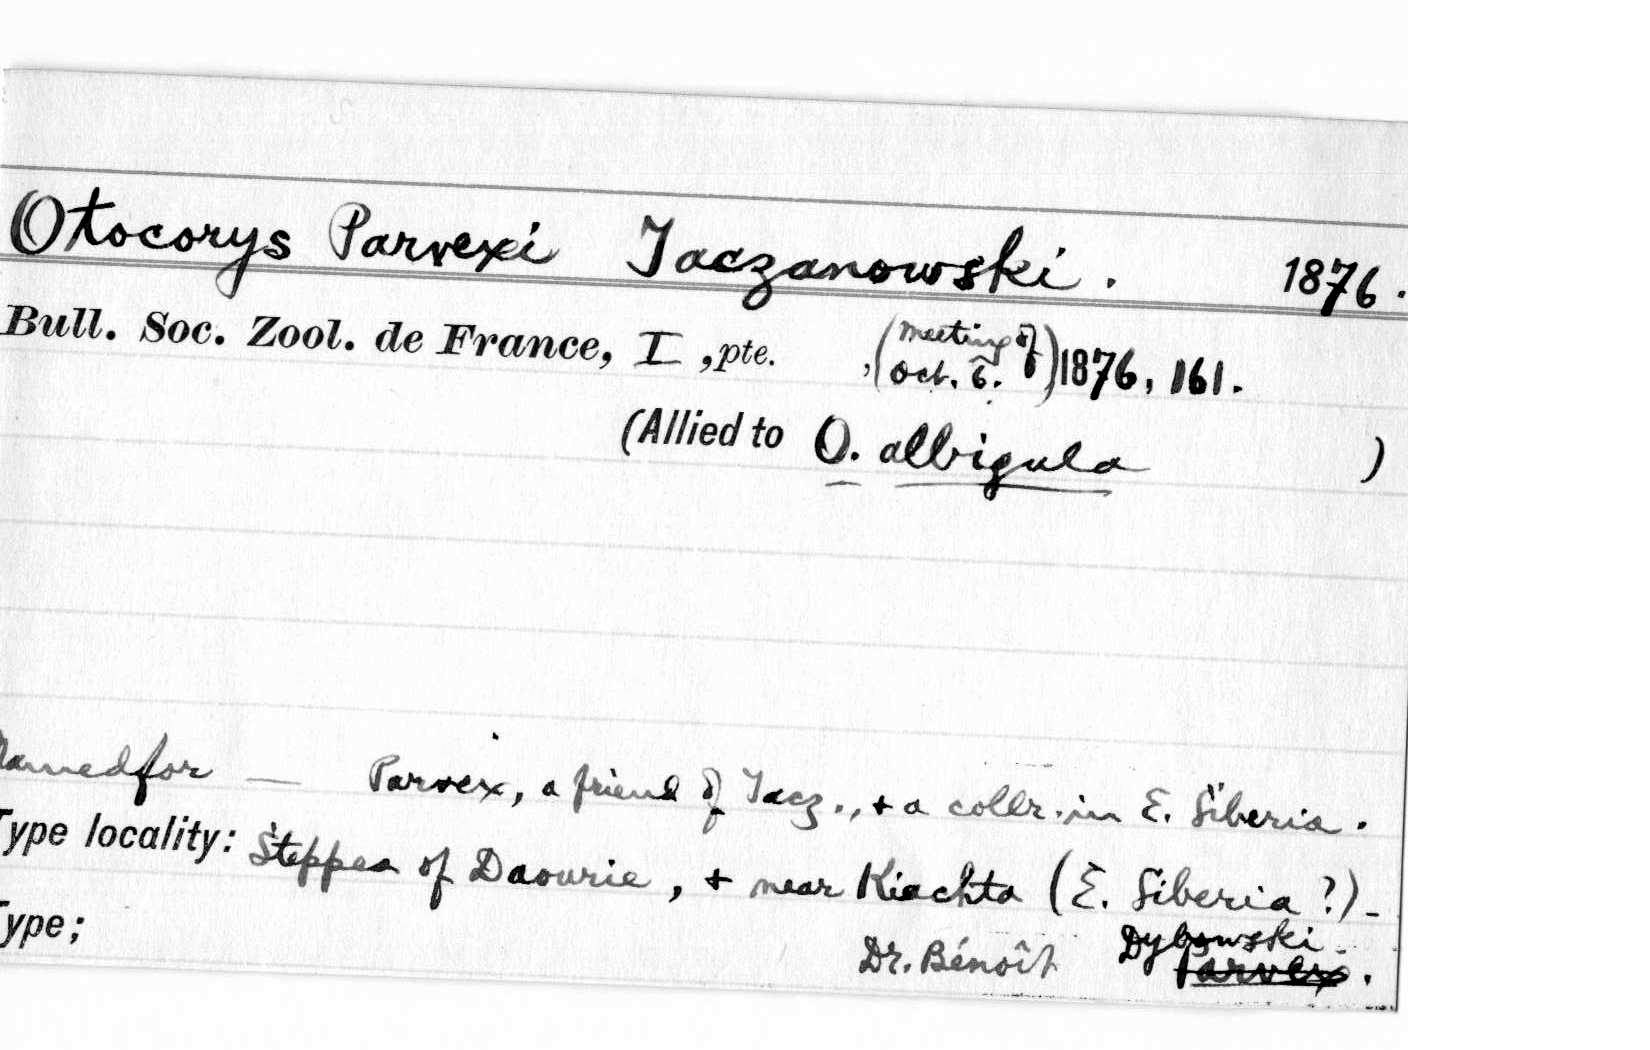 Otocorys Parvexi Taczanowski. 1876.
Bull. Soc. Zool. de France, I, pte. , (Meeting of Oct. 6.) 1876, 161.
(Allied to O. albigula )
Named for — Parvex, a friend of Tacz., + a collr. in E. Siberia.
Type locality: Steppes of Daourie, + near Kiachta (E. Siberia ?) -
Type; Dr. Bénoît Dybowski Parvex.